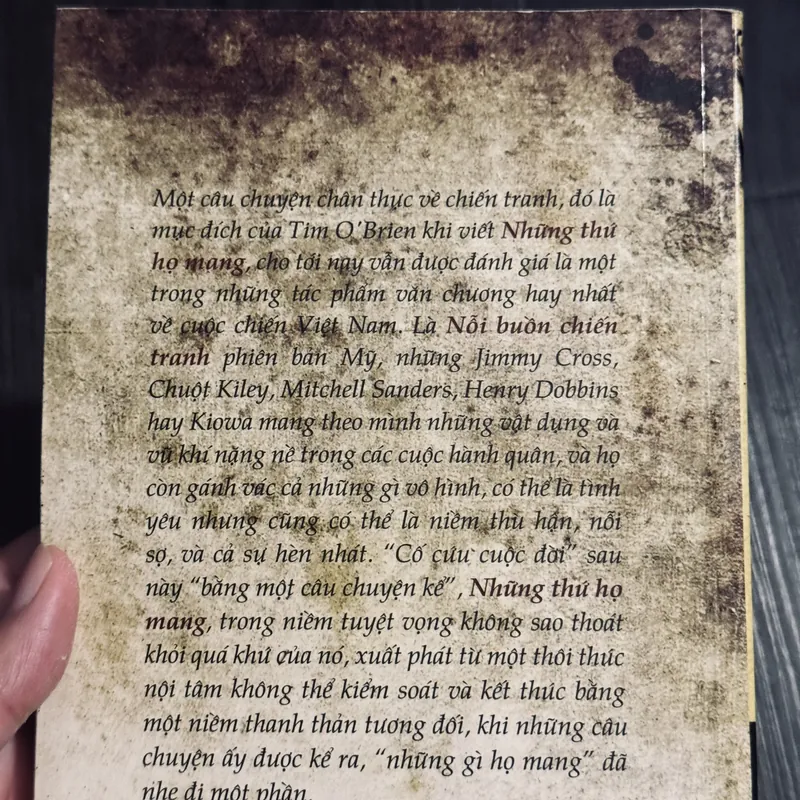 Một câu chuyện chân thực về chiến tranh, đó là
mục đích của Tim O'Brien khi viết Những thứ
họ mang, cho tới nay vẫn được đánh giá là một
trong những tác phẩm văn chương hay nhất
về cuộc chiến Việt Nam. Là Nỗi buồn chiến
tranh phiên bản Mỹ, những Jimmy Cross,
Chuột Kiley, Mitchell Sanders, Henry Dobbins
hay Kiowa mang theo mình những vật dụng và
vũ khí nặng nề trong các cuộc hành quân, và họ
còn gánh vác cả những gì vô hình, có thể là tình
yêu nhưng cũng có thể là niềm thù hận, nỗi
sợ, và cả sự hèn nhát. “Cố cứu cuộc đời” sau
này “bằng một câu chuyện kể”, Những thứ họ
mang, trong niềm tuyệt vọng không sao thoát
khỏi quá khứ của nó, xuất phát từ một thôi thúc
nội tâm không thể kiểm soát và kết thúc bằng
một niềm thanh thản tương đối, khi những câu
chuyện ấy được kể ra, “những gì họ mang” đã
nhẹ đi một phần.